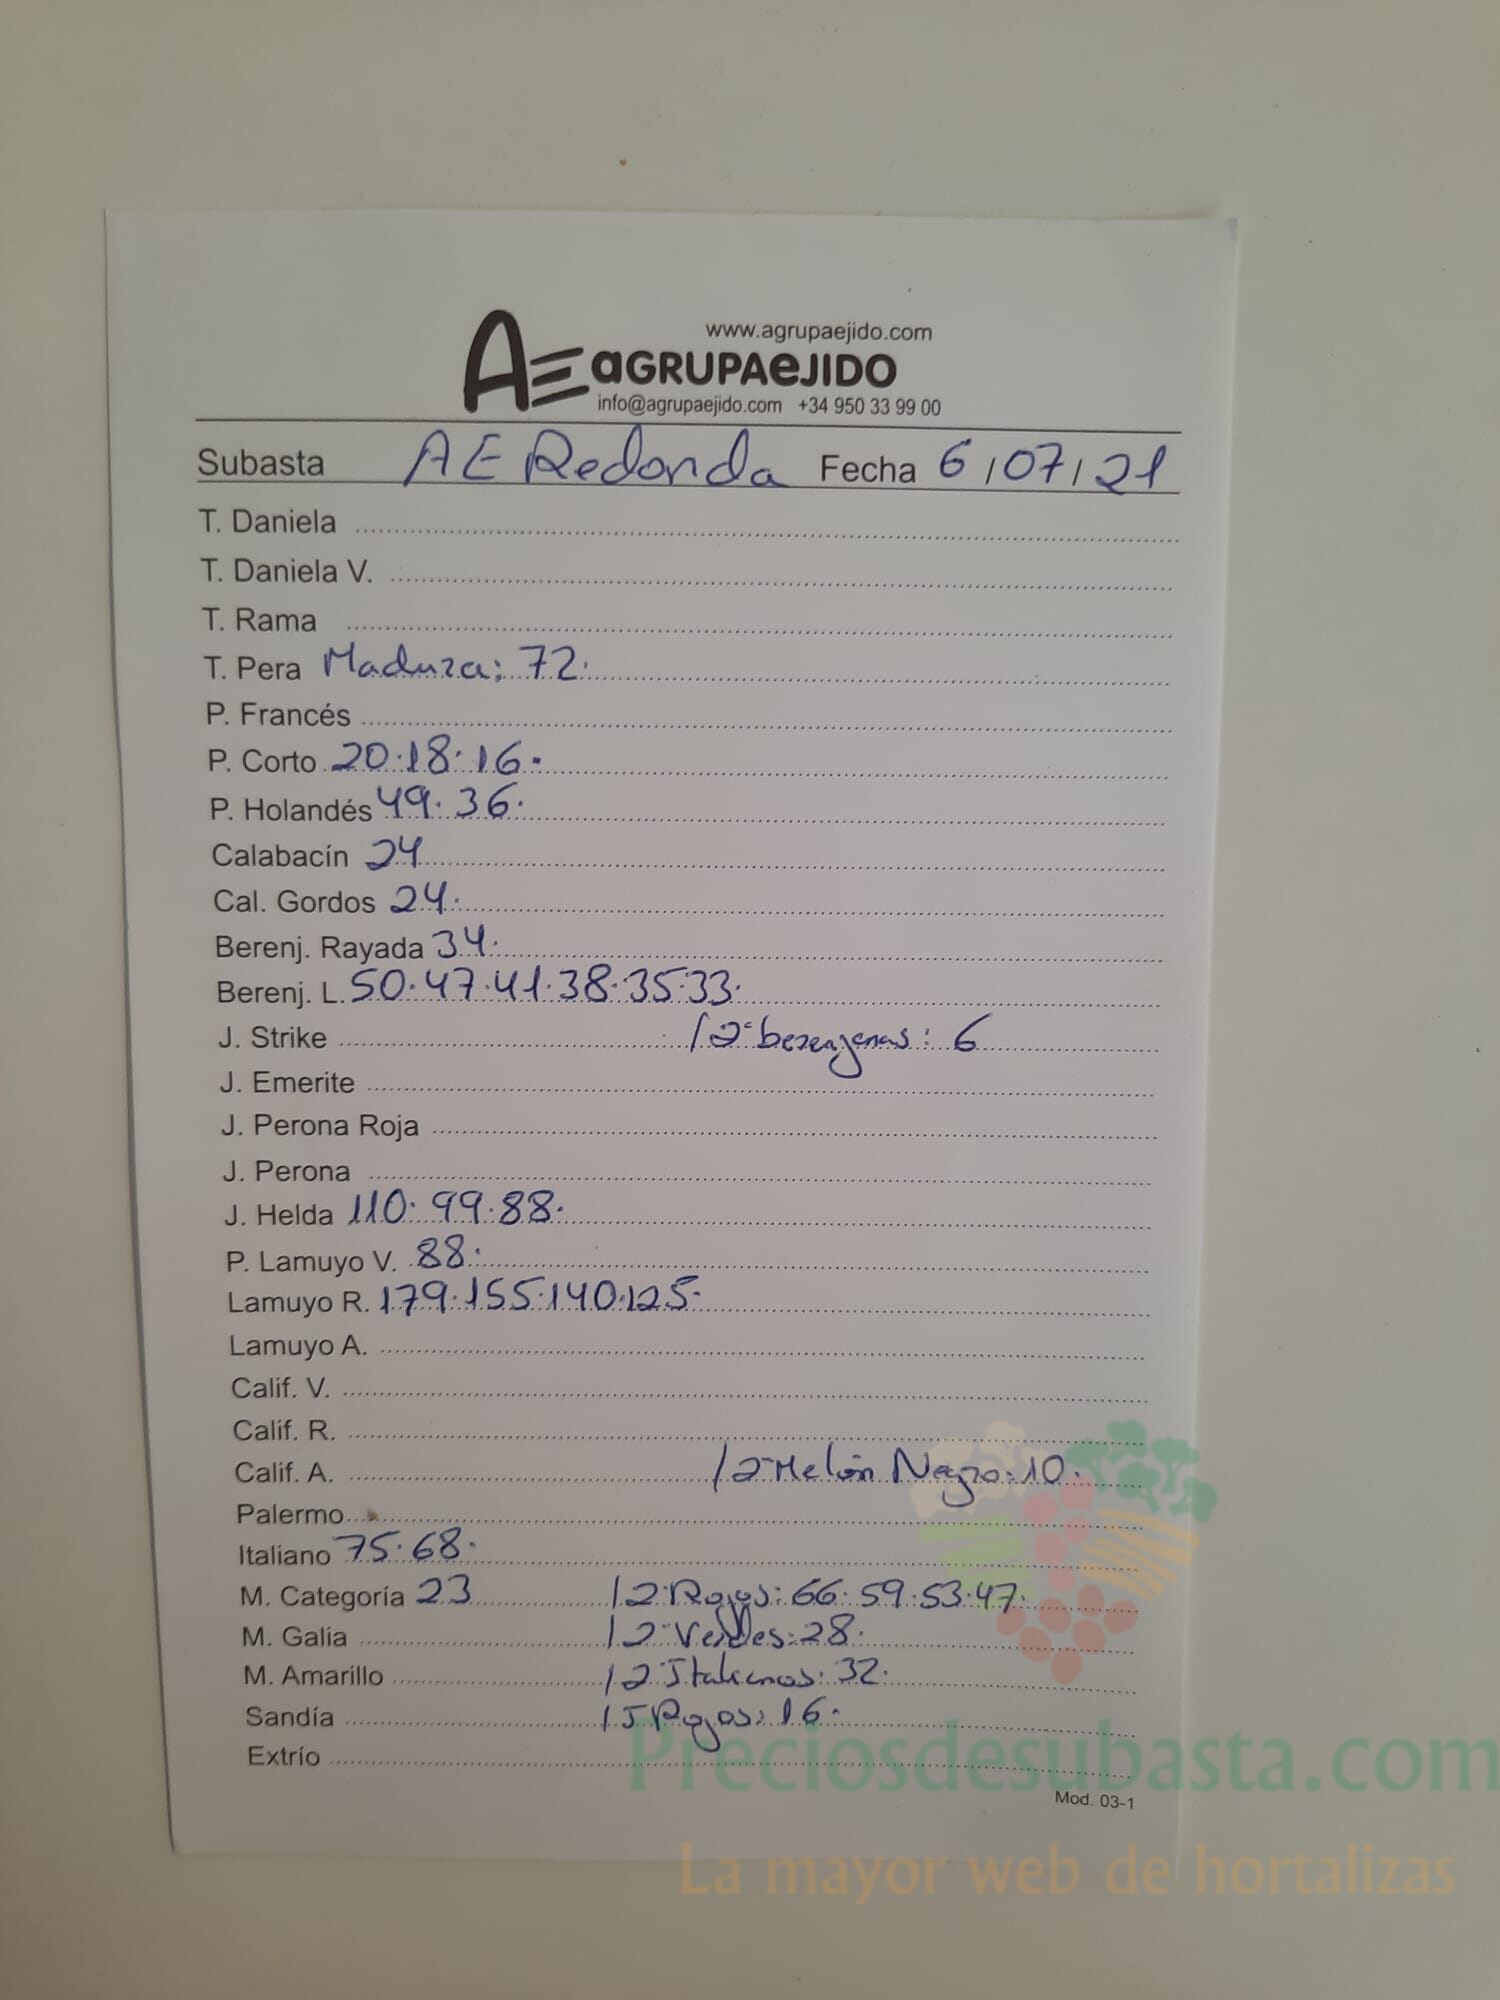 www.agrupaejido.com
AE aGRUPAeJIDO
info@agrupaejido.com +34 950 33 99 00
Subasta AE Redonda Fecha 6/07/21
T. Daniela
T. Daniela V.
T. Rama
T. Pera Madura: 72.
P. Francés
P. Corto 20.18.16.
P. Holandés 49.36.
Calabacín 24
Cal. Gordos 24.
Berenj. Rayada 34.
Berenj. L. 50.47.41.38.35.33.
J. Strike /2ª berenjenas: 6
J. Emerite
J. Perona Roja
J. Perona
J. Helda 110.99.88.
P. Lamuyo V. 88.
Lamuyo R. 179.155.140.125.
Lamuyo A.
Calif. V.
Calif. R.
Calif. A. /2ª Melón Negro: 10.
Palermo
Italiano 75.68.
M. Categoría 23 /2ª Rojos: 66.59.53.47.
M. Galia /2ª Verdes: 28.
M. Amarillo /2ª Italianos: 32.
Sandía /J Rojos: 16.
Extrío
Mod. 03-1
Preciosdesubasta.com
La mayor web de hortalizas